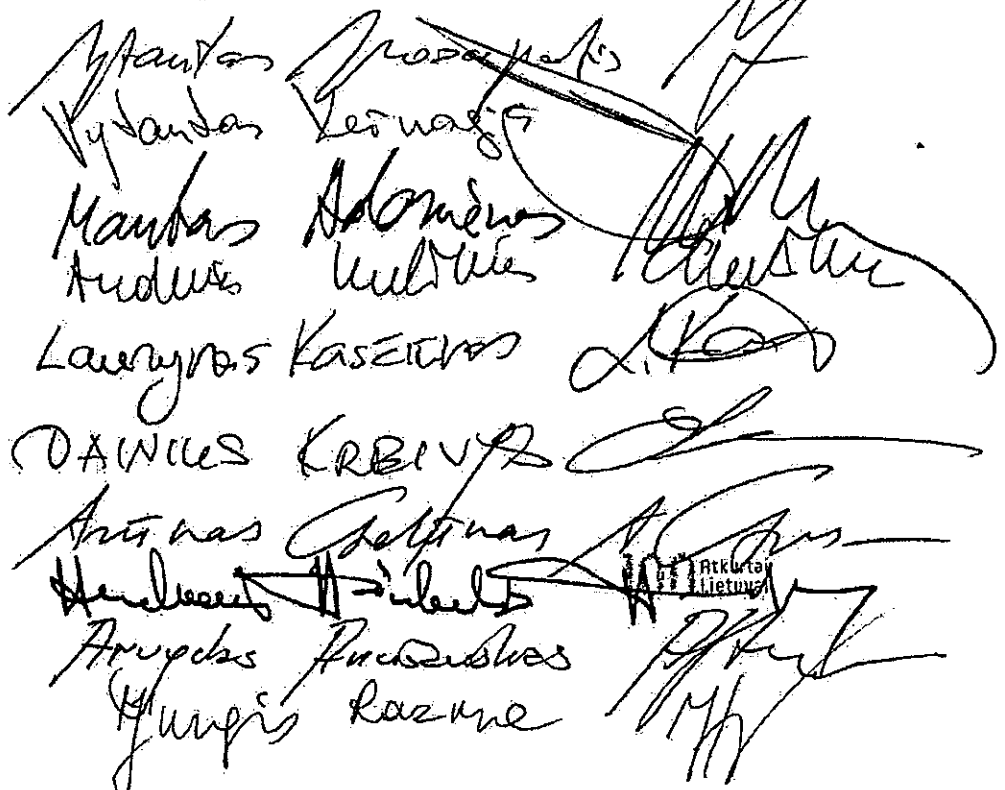 Vytautas Juozapaitis
Vytautas Kernagis
Mantas Adomėnas
Andrius Kubilius
Laurynas Kasčiūnas L. Kas
DAINIUS KREIVYS
Arūnas Gelūnas
Atkurtai
Lietuvai
Arvydas Anušauskas
Jurgis Razma